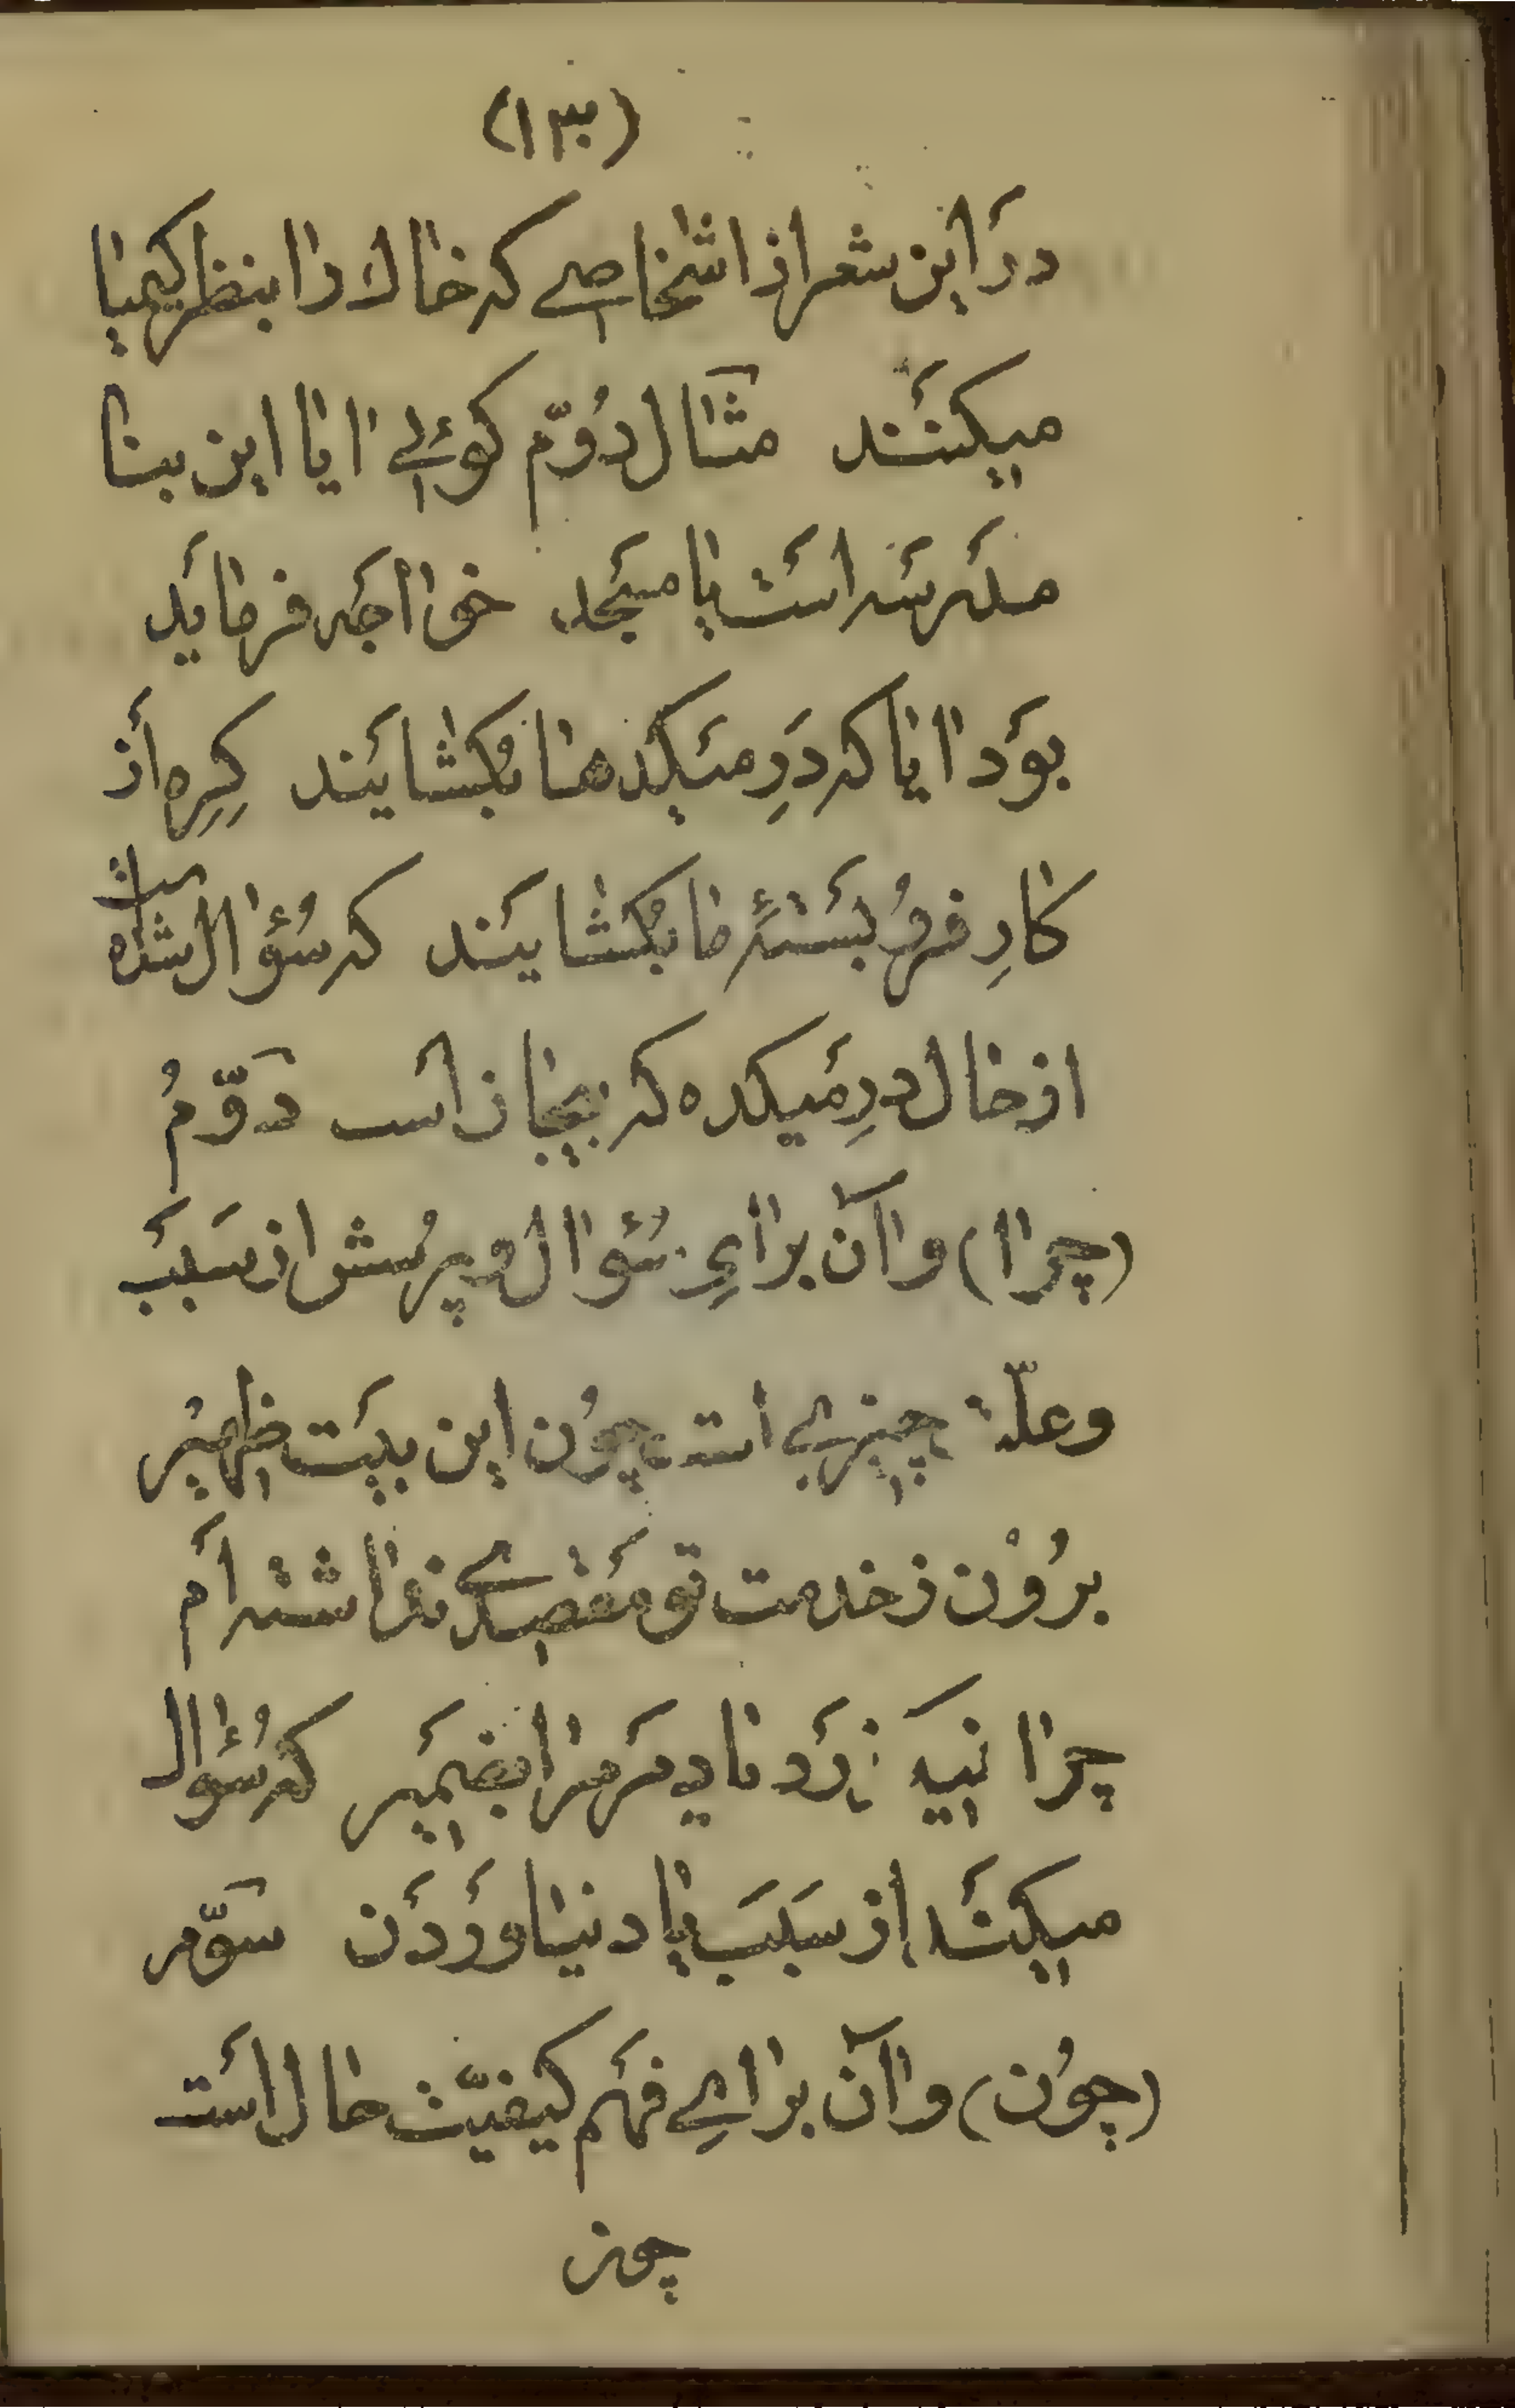 (۱۳)
دَر این شعر از اشخاصے که خاك را بنظر کیمیا
میکنَند مثال دُوّم کوئے ایا این بنا
مدَرسَه اسَت یا مسَجد خوااجَه فرماید
بوَد ایا که دَرِ میَکدها بُکشایَند کِرِه أز
کارِ فروُبسَتهٔ ما بُکشایَند که سُؤال شده است
از حال درِ مَیکده که بیجان أست دوّمُ
(چرا) و آن براایِ سُؤال و پرُسش از سَبَبَ
وعلّة چیزے است چوُن این بیَت ظهیُر
برُوُن ز خدمت تو مَقصدے نداشته اَم
چرا نیَ زَرَد نایدِ مَر مرا بضَمیَر که سُؤال
میکنَد از سَبَبَ یاد نیاوَردَن سوّم
(چوُن) و آن برااے فهَم کیفیّت حال أست
چون